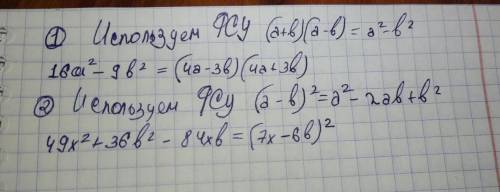 ① Используем ФСУ (a+b)(a-b) = a²-b²
16a² - 9b² = (4a-3b)(4a+3b)
② Используем ФСУ (a-b)² = a² - 2ab + b²
49x² + 36b² - 84xb = (7x-6b)²